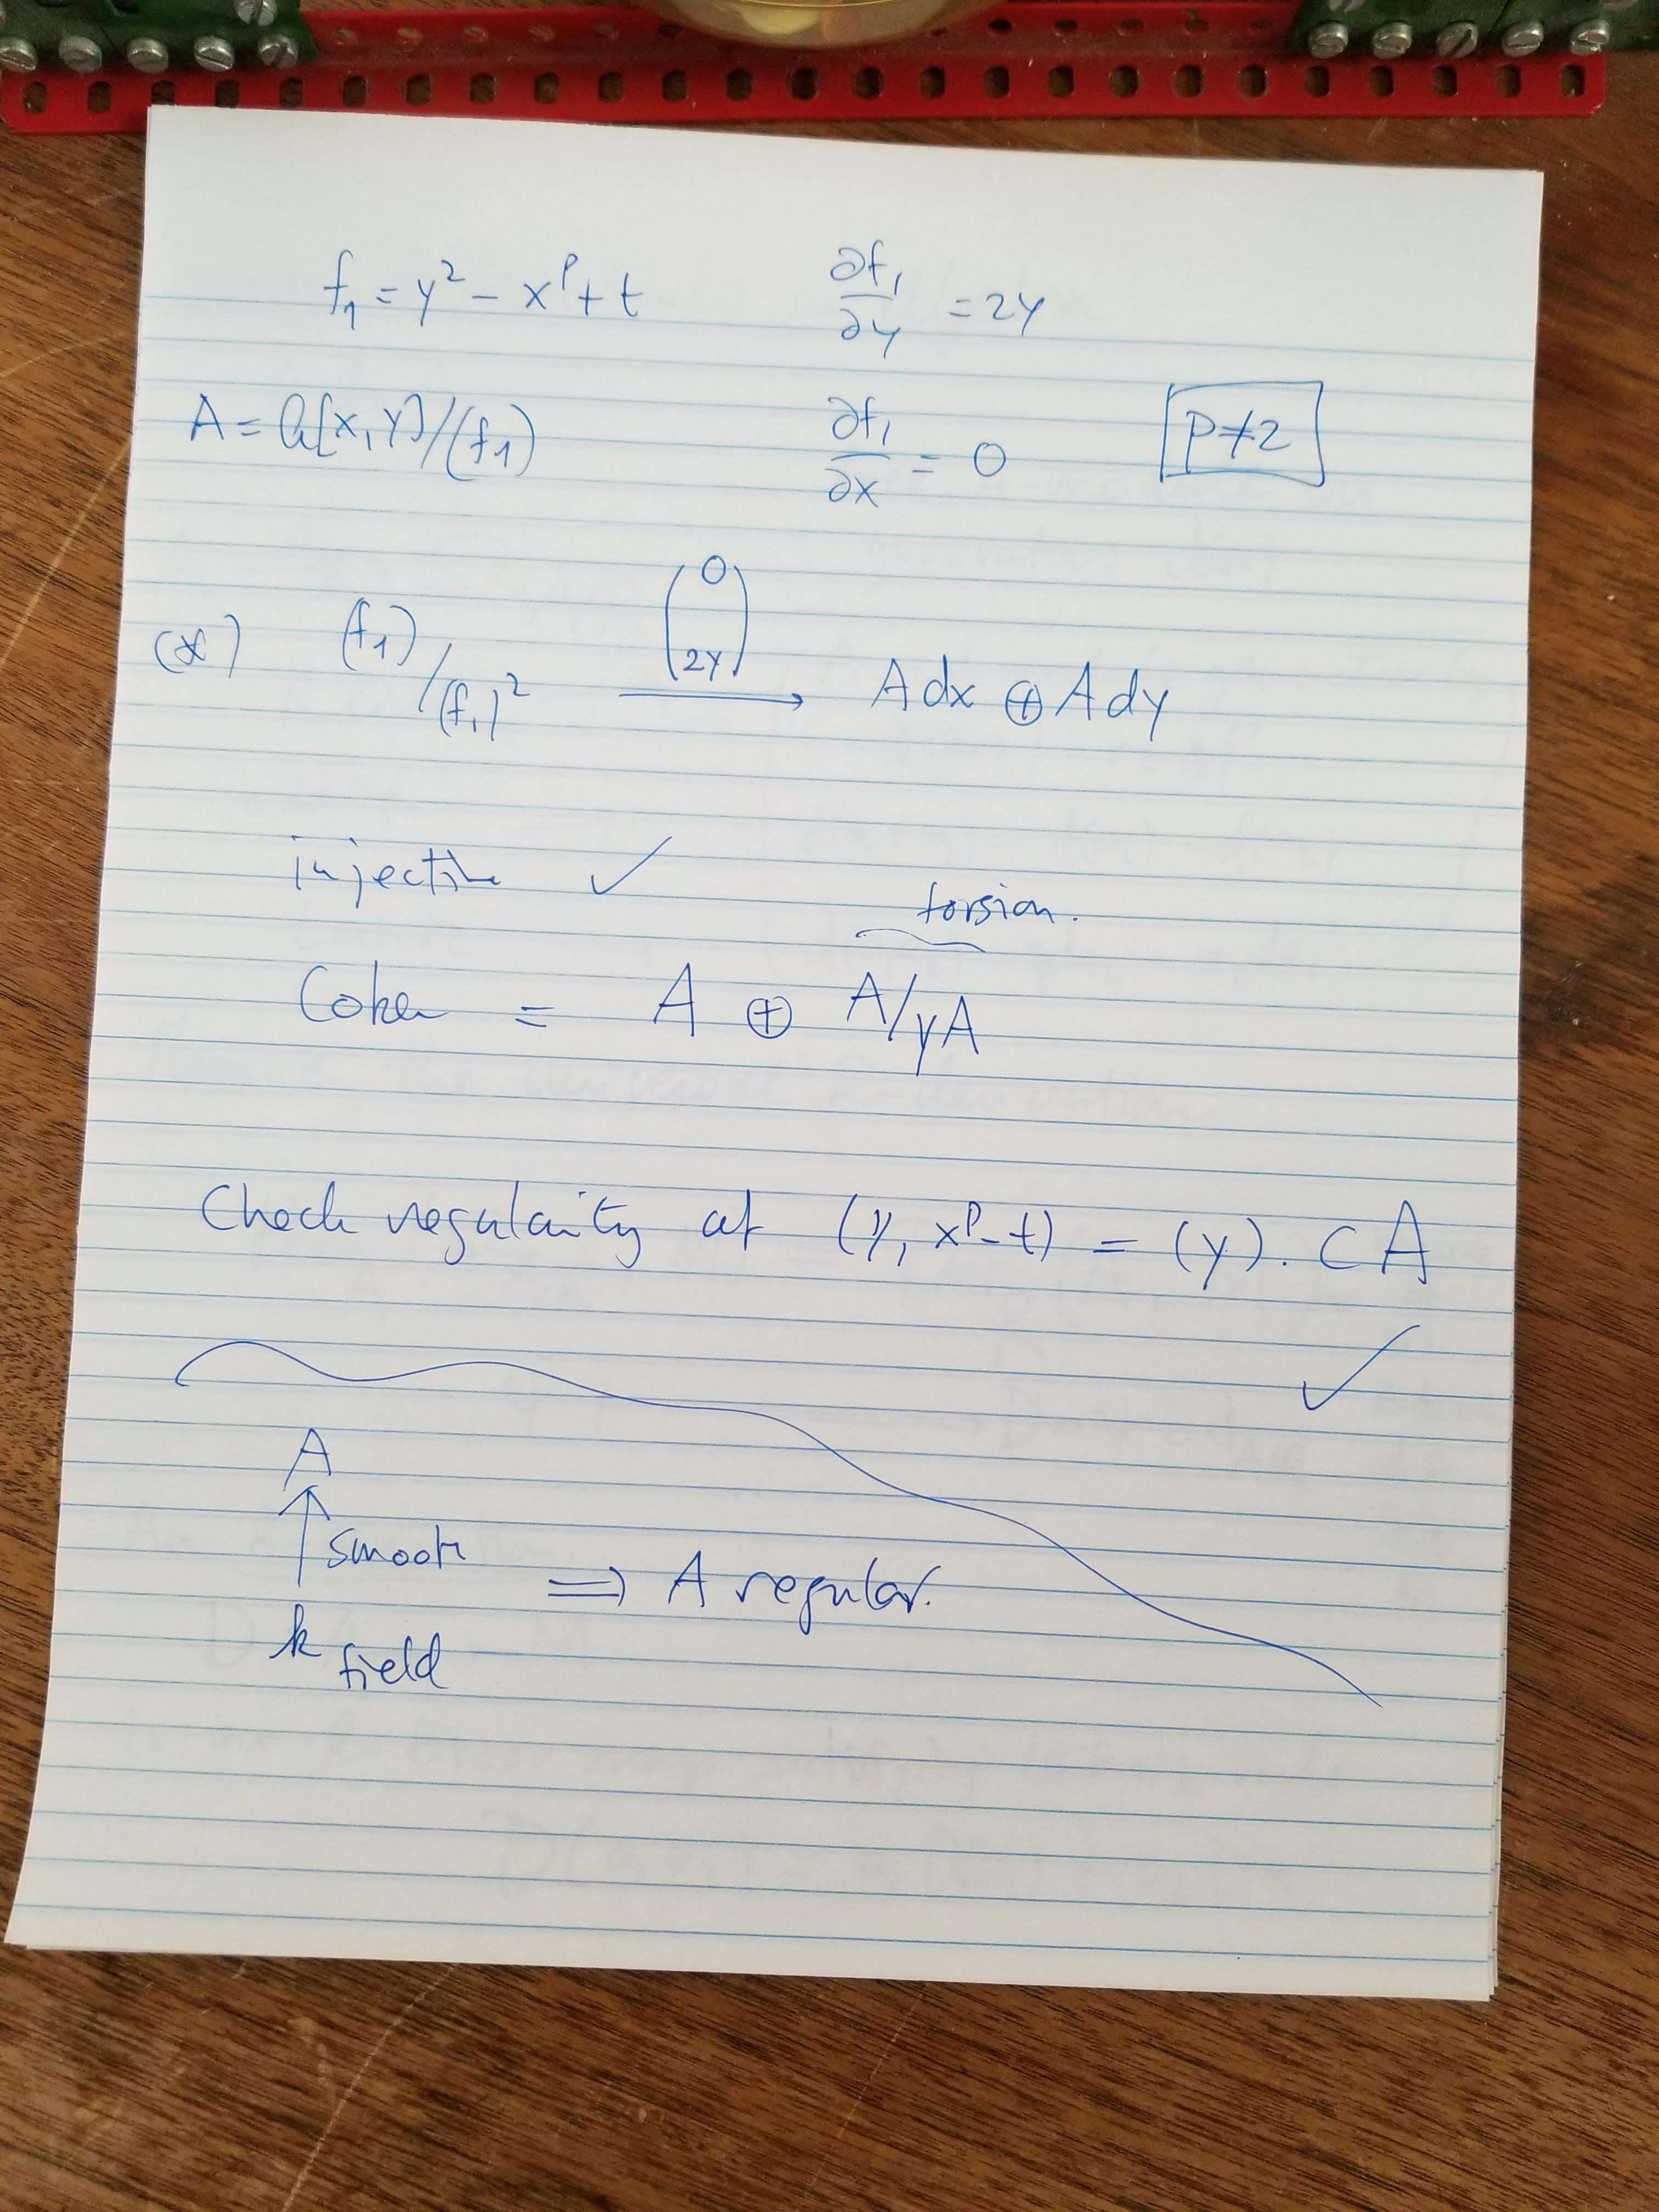 f₁ = y² − x^p + t   ∂f₁/∂y = 2y
A = k[x,y]/(f₁)   ∂f₁/∂x = 0   p≠2
(*) (f₁)/(f₁)² → Adx ⊕ Ady
(0
2y)
injective ✓
torsion.
Coker = A ⊕ A/yA
Check regularity at (y, x^p−t) = (y). ⊂ A
✓
A
↑ smooth
⟹ A regular.
k field